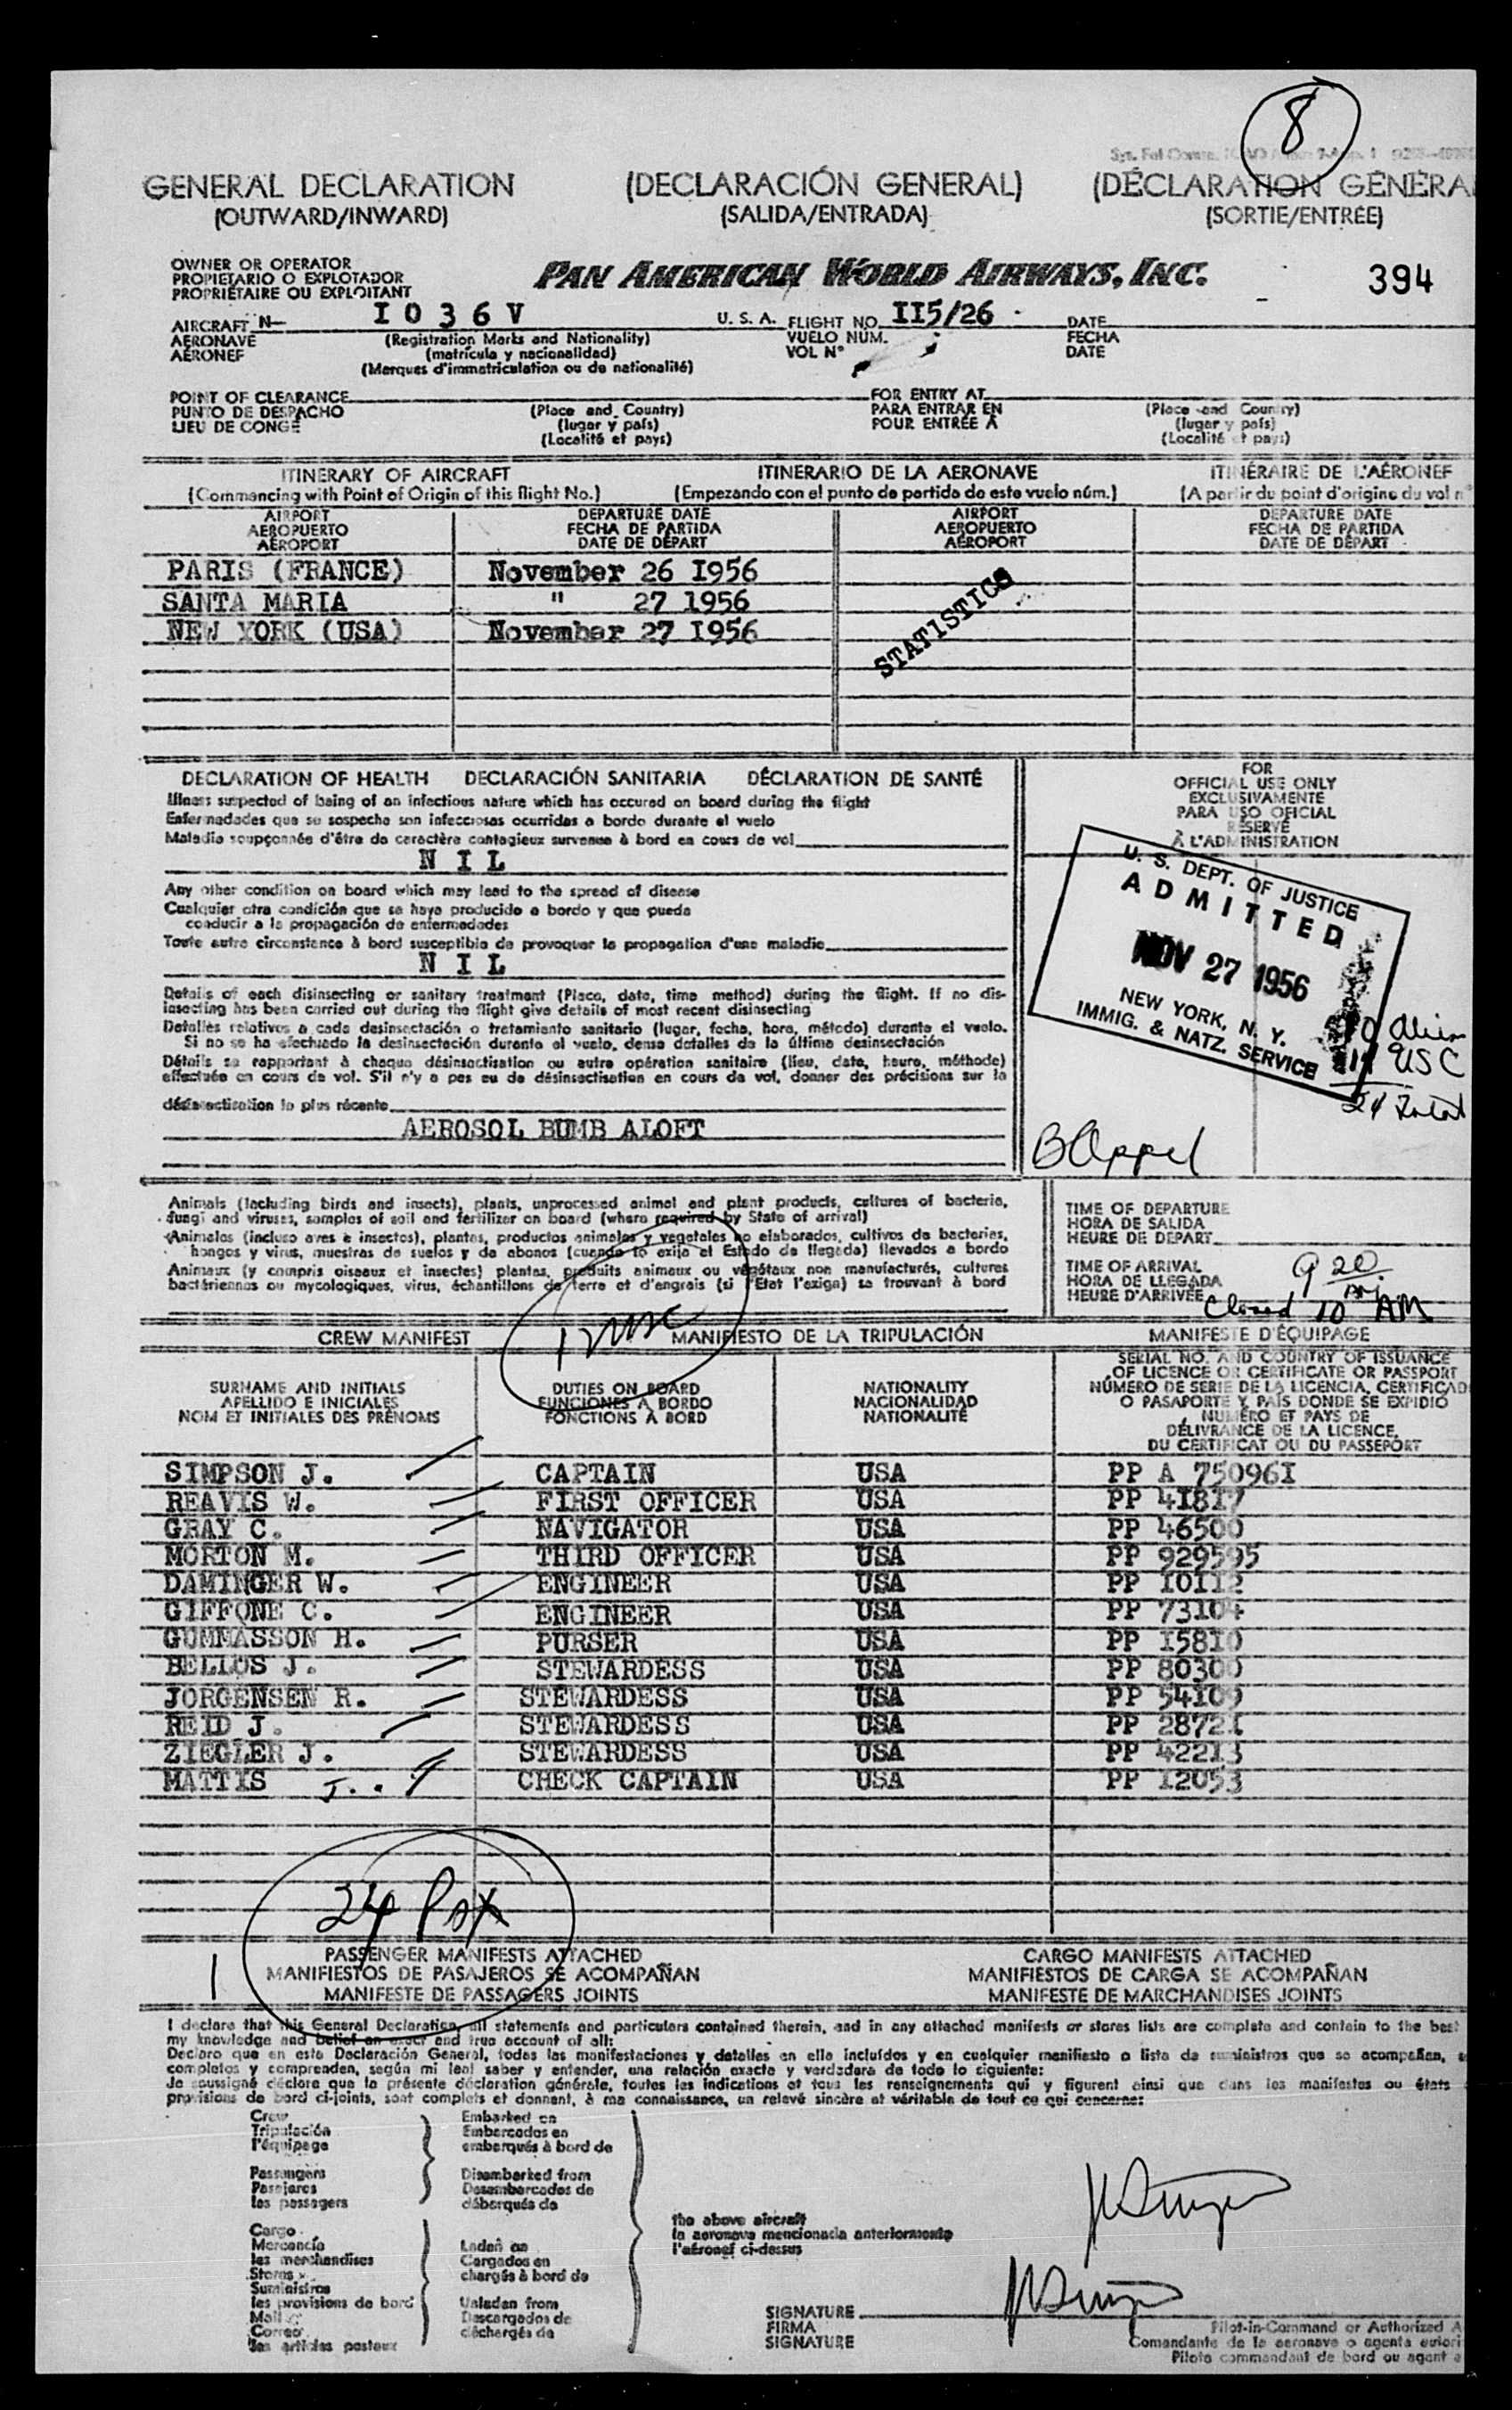 8
GENERAL DECLARATION (DECLARACIÓN GENERAL) (DÉCLARATION GÉNÉRA
(OUTWARD/INWARD) (SALIDA/ENTRADA) (SORTIE/ENTRÉE)
OWNER OR OPERATOR
PROPIETARIO O EXPLOTADOR
PROPRIÉTAIRE OU EXPLOITANT
PAN AMERICAN WORLD AIRWAYS, INC. 394
AIRCRAFT N- I 0 3 6 V U. S. A. FLIGHT NO. II5/26 DATE
AERONAVE (Registration Marks and Nationality) VUELO NUM. FECHA
AÉRONEF (matrícula y nacionalidad) VOL N° DATE
(Marques d'immatriculation ou de nationalité)
POINT OF CLEARANCE FOR ENTRY AT
PUNTO DE DESPACHO (Place and Country) PARA ENTRAR EN (Place and Country)
LIEU DE CONGÉ (lugar y país) POUR ENTRÉE A (lugar y país)
(Localité et pays) (Localité et pays)
ITINERARY OF AIRCRAFT ITINERARIO DE LA AERONAVE ITINÉRAIRE DE L'AÉRONEF
(Commencing with Point of Origin of this flight No.) (Empezando con el punto de partida de este vuelo núm.) (A partir du point d'origine du vol n°
AIRPORT DEPARTURE DATE AIRPORT DEPARTURE DATE
AEROPUERTO FECHA DE PARTIDA AEROPUERTO FECHA DE PARTIDA
AÉROPORT DATE DE DÉPART AÉROPORT DATE DE DÉPART
PARIS (FRANCE) November 26 I956
SANTA MARIA " 27 1956
NEW YORK (USA) November 27 I956
STATISTICS
DECLARATION OF HEALTH DECLARACIÓN SANITARIA DÉCLARATION DE SANTÉ
Illness suspected of being of an infectious nature which has occured on board during the flight
Enfermedades que se sospecha son infecciosas ocurridas a bordo durante el vuelo
Maladie soupçonnée d'être de caractère contagieux survenue à bord en cours de vol
N I L
Any other condition on board which may lead to the spread of disease
Cualquier otra condición que se haya producido a bordo y que pueda
conducir a la propagación de enfermedades
Toute autre circonstance à bord susceptible de provoquer la propagation d'une maladie
N I L
Details of each disinsecting or sanitary treatment (Place, date, time method) during the flight. If no dis-
insecting has been carried out during the flight give details of most recent disinsecting
Detalles relativos a cada desinsectación o tratamiento sanitario (lugar, fecha, hora, método) durante el vuelo.
Si no se ha efectuado la desinsectación durante el vuelo, dense detalles de la última desinsectación
Détails se rapportant à chaque désinsectisation ou autre opération sanitaire (lieu, date, heure, méthode)
effectuée en cours de vol. S'il n'y a pas eu de désinsectisation en cours de vol, donner des précisions sur la
désinsectisation la plus récente
AEROSOL BUMB ALOFT
FOR
OFFICIAL USE ONLY
EXCLUSIVAMENTE
PARA USO OFICIAL
RÉSERVÉ
À L'ADMINISTRATION
U. S. DEPT. OF JUSTICE
ADMITTED
NOV 27 1956
NEW YORK, N. Y.
IMMIG. & NATZ. SERVICE
10 alien
USC
24 Total
B Appel
Animals (including birds and insects), plants, unprocessed animal and plant products, cultures of bacteria,
fungi and viruses, samples of soil and fertilizer on board (where required by State of arrival)
Animales (incluso aves e insectos), plantas, productos animales y vegetales no elaborados, cultivos de bacterias,
hongos y virus, muestras de suelos y de abonos (cuando lo exija el Estado de llegada) llevados a bordo
Animaux (y compris oiseaux et insectes) plantes, produits animaux ou végétaux non manufacturés, cultures
bactériennes ou mycologiques, virus, échantillons de terre et d'engrais (si l'Etat l'exige) se trouvant à bord
TIME OF DEPARTURE
HORA DE SALIDA
HEURE DE DÉPART
TIME OF ARRIVAL
HORA DE LLEGADA
HEURE D'ARRIVÉE
9 20
Closed 10 AM
CREW MANIFEST MANIFIESTO DE LA TRIPULACIÓN MANIFESTE D'ÉQUIPAGE
SURNAME AND INITIALS
APELLIDO E INICIALES
NOM ET INITIALES DES PRÉNOMS
DUTIES ON BOARD
FUNCIONES A BORDO
FONCTIONS À BORD
NATIONALITY
NACIONALIDAD
NATIONALITÉ
SERIAL NO. AND COUNTRY OF ISSUANCE
OF LICENCE OR CERTIFICATE OR PASSPORT
NÚMERO DE SERIE DE LA LICENCIA, CERTIFICAD
O PASAPORTE Y PAÍS DONDE SE EXPIDIÓ
NUMÉRO ET PAYS DE
DÉLIVRANCE DE LA LICENCE,
DU CERTIFICAT OU DU PASSEPORT
SIMPSON J. CAPTAIN USA PP A 75096I
REAVIS W. FIRST OFFICER USA PP 4I817
GRAY C. NAVIGATOR USA PP 46500
MORTON M. THIRD OFFICER USA PP 929595
DAMINGER W. ENGINEER USA PP I0112
GIFFONE C. ENGINEER USA PP 73104
GUMMASSON H. PURSER USA PP I5810
BELLOS J. STEWARDESS USA PP 80300
JORGENSEN R. STEWARDESS USA PP 54109
REID J. STEWARDESS USA PP 2872I
ZIEGLER J. STEWARDESS USA PP 42213
MATTIS J. CHECK CAPTAIN USA PP 12053
24 Psx
PASSENGER MANIFESTS ATTACHED CARGO MANIFESTS ATTACHED
MANIFIESTOS DE PASAJEROS SE ACOMPAÑAN MANIFIESTOS DE CARGA SE ACOMPAÑAN
MANIFESTE DE PASSAGERS JOINTS MANIFESTE DE MARCHANDISES JOINTS
I declare that this General Declaration, all statements and particulars contained therein, and in any attached manifests or stores lists are complete and contain to the best
my knowledge and belief an exact and true account of all:
Declaro que en esta Declaración General, todas las manifestaciones y detalles en ella incluídos y en cualquier manifiesto o lista de suministros que se acompañan,
completos y comprenden, según mi leal saber y entender, una relación exacta y verdadera de todo lo siguiente:
Je soussigné déclare que la présente déclaration générale, toutes les indications et tous les renseignements qui y figurent ainsi que dans les manifestes ou états
provisions de bord ci-joints, sont complets et donnent, à ma connaissance, un relevé sincère et véritable de tout ce qui concerne:
Crew Embarked on
Tripulación Embarcados en
l'équipage embarqués à bord de
Passengers Disembarked from
Pasajeros Desembarcados de
les passagers débarqués de
the above aircraft
la aeronave mencionada anteriormente
l'aéronef ci-dessus
Cargo
Mercancía Laden on
les marchandises Cargados en
Stores chargés à bord de
Suministros
les provisions de bord Unladen from
Mail Descargados de
Correo déchargés de
les articles postaux
SIGNATURE
FIRMA
SIGNATURE
Pilot-in-Command or Authorized A
Comandante de la aeronave o agente autori
Pilote commandant de bord ou agent a